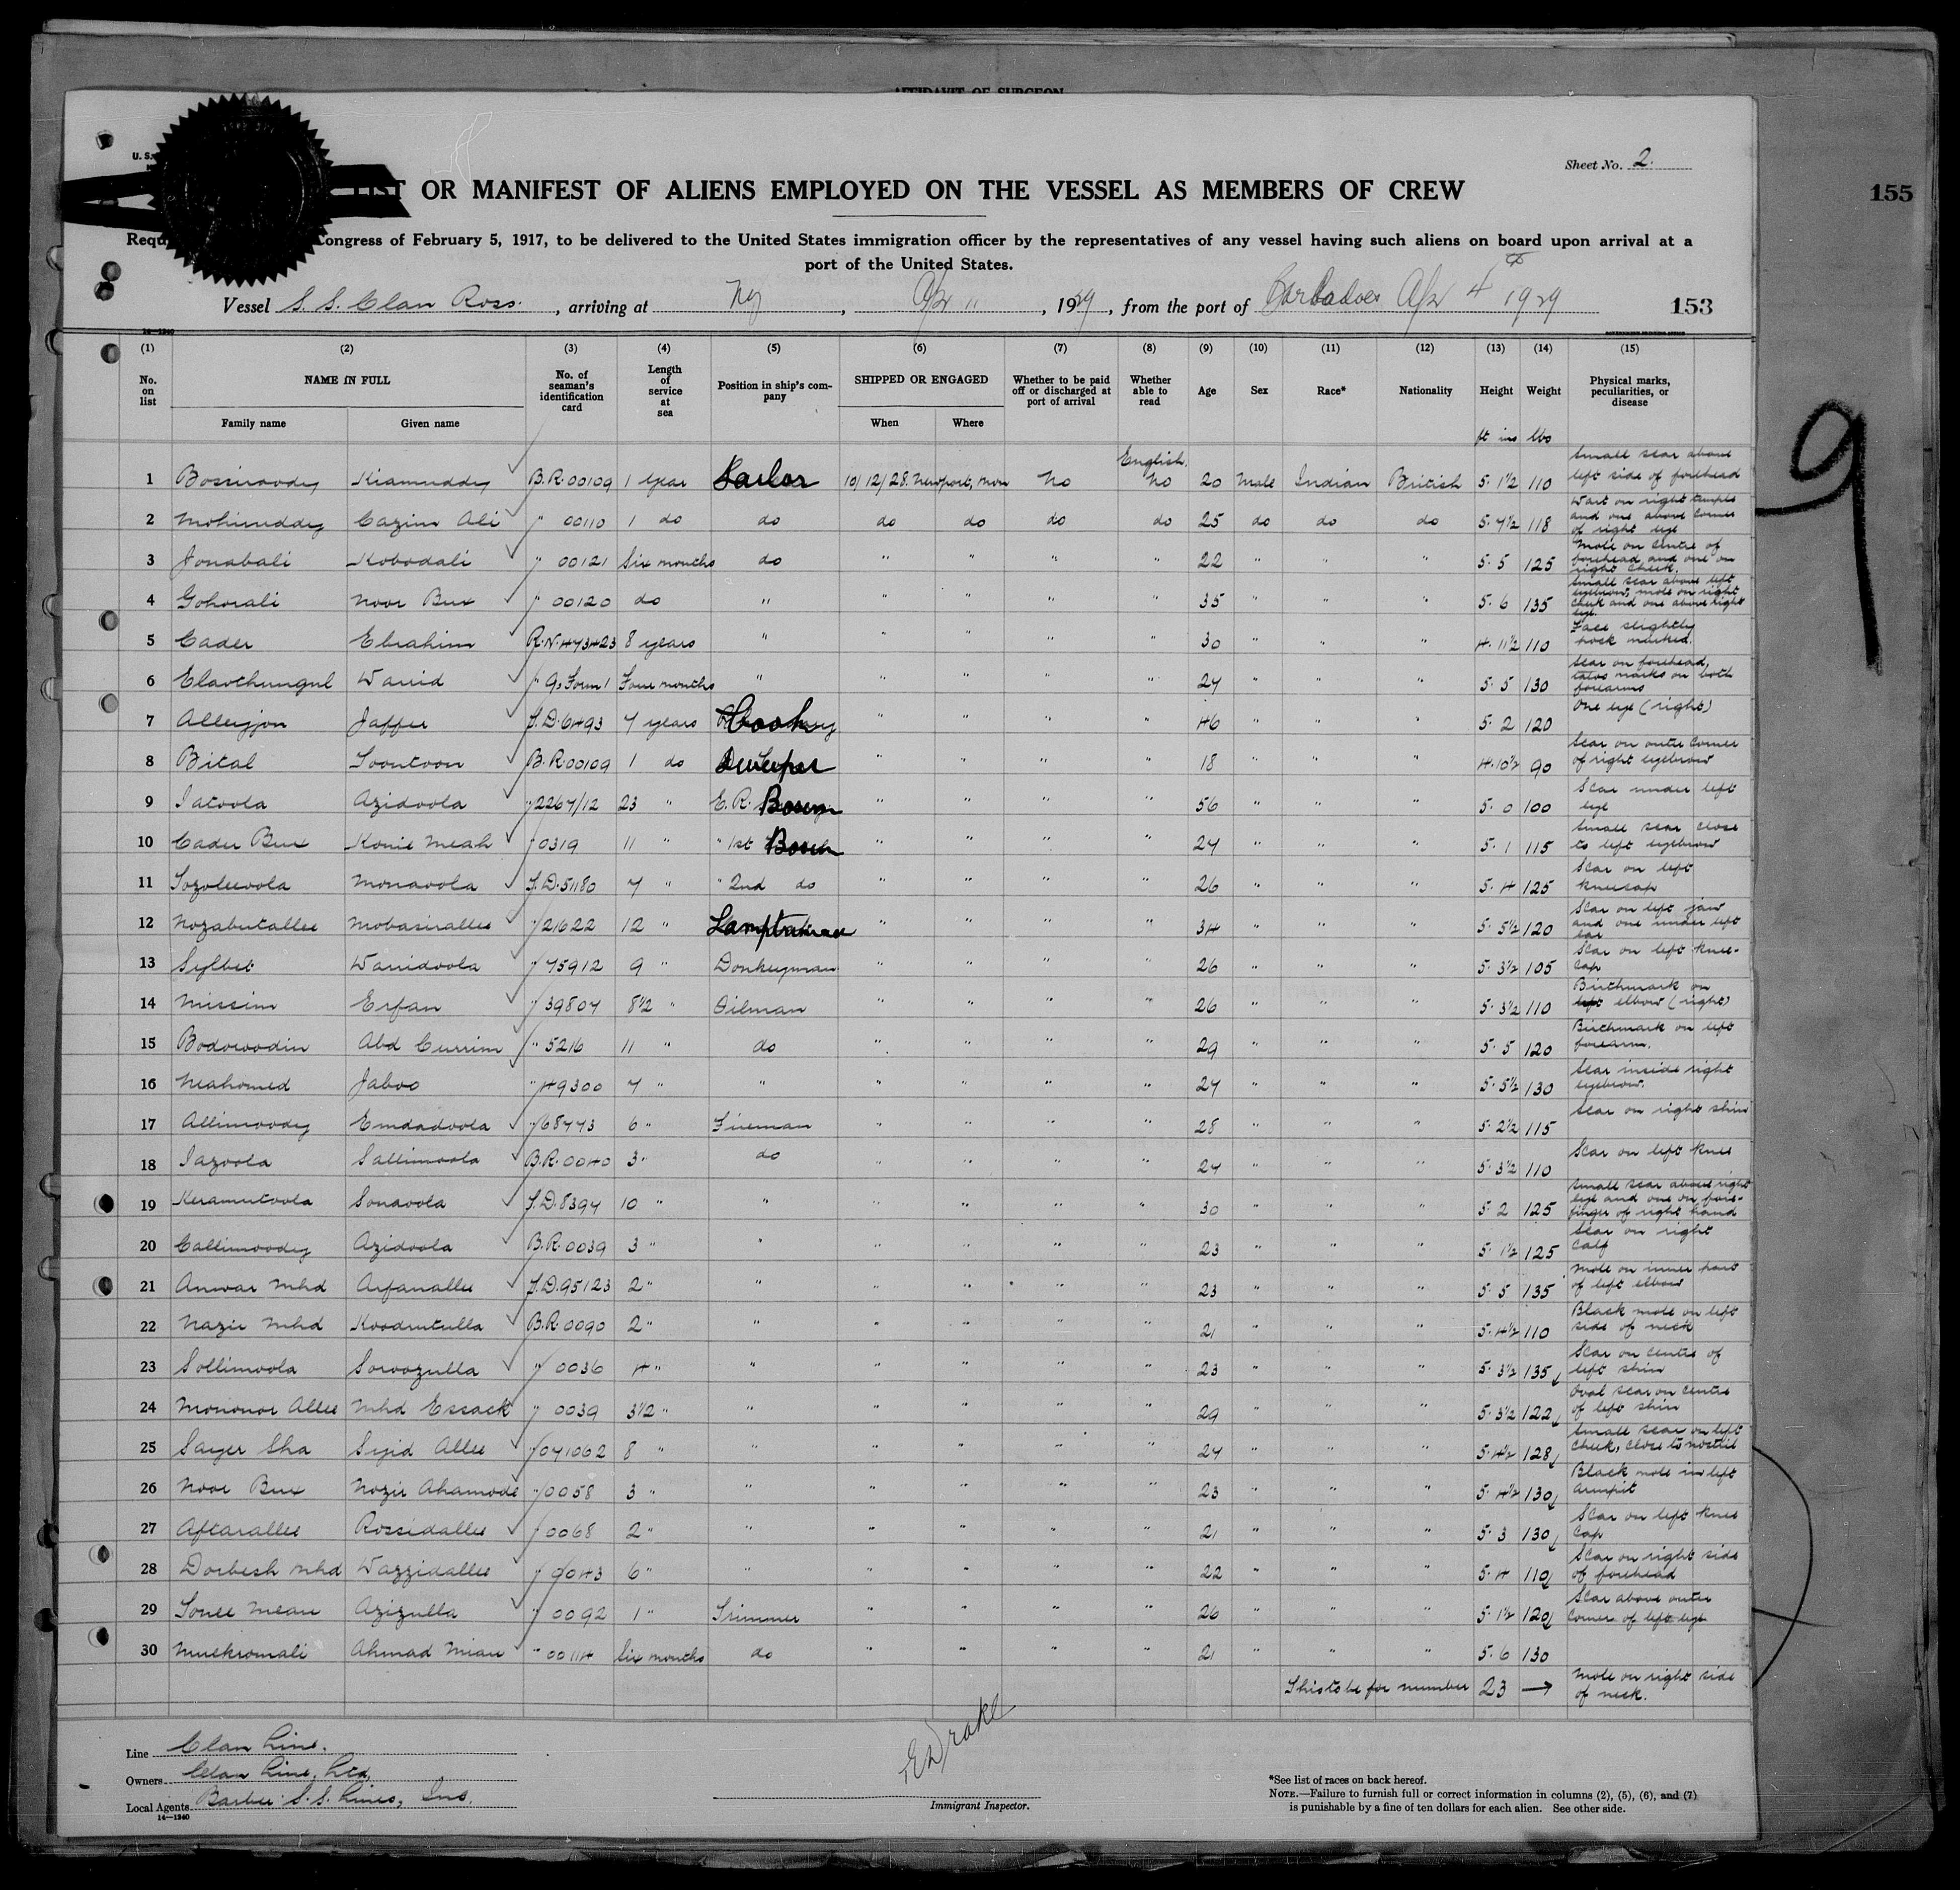 AFFIDAVIT OF SURGEON
U. S.
Sheet No. 2.
LIST OR MANIFEST OF ALIENS EMPLOYED ON THE VESSEL AS MEMBERS OF CREW
155
Requ Congress of February 5, 1917, to be delivered to the United States immigration officer by the representatives of any vessel having such aliens on board upon arrival at a
port of the United States.
Vessel S. S. Clan Ross. , arriving at Ny , Apr 11 , 1929, from the port of Barbados Apr 4th 1929 153
14—1240 GOVERNMENT PRINTING OFFICE
(1) (2) (3) (4) (5) (6) (7) (8) (9) (10) (11) (12) (13) (14) (15)
No. on list NAME IN FULL Family name Given name No. of seaman's identification card Length of service at sea Position in ship's company SHIPPED OR ENGAGED When Where Whether to be paid off or discharged at port of arrival Whether able to read Age Sex Race* Nationality Height Weight Physical marks, peculiarities, or disease
ft ins lbs
9
1 Bossiroody Kiamuddy B.R. 00109 1 year Sailor 10/12/28. Newport, Mon No English. No 20 Male Indian British 5. 1½ 110 Small scar above left side of forehead
2 Mohimuddy Cazim Ali " 00110 1 do do do do do do 25 do do do 5. 7½ 118 Wart on right temple and one above corner of right eye
3 Jonabali Kobodali " 00121 Six months do " " " " 22 " " " 5. 5 125 Mole on centre of forehead and one on right cheek.
4 Gohorali Noor Bux " 00120 do " " " " " 35 " " " 5. 6 135 Small scar above left eyebrow, mole on right cheek and one above right eye.
5 Cader Ebrahim R.N.473423 8 years " " " " " 30 " " " 4. 11½ 110 Face slightly pock marked.
6 Elavchungul Wauid " 9, Form 1 Four months " " " " " 24 " " " 5. 5 130 Scar on forehead, tatoo marks on both forearms
7 Alleyjon Jaffer S.D. 6493 7 years Cook " " " " 46 " " " 5. 2 120 One eye (right)
8 Bital Soontoon B.R. 00109 1 do " " " " 18 " " " 4. 10½ 90 Scar on outer corner of right eyebrow
9 Iatoola Azidoola " 2267/12 23 " E. R. " " " " 56 " " " 5. 0 100 Scar under left eye
10 Cader Bux Konie Meah " 0319 11 " " 1st " " " " 24 " " " 5. 1 115 Small scar close to left eyebrow
11 Sozoleevola Monavola S.D. 51180 7 " " 2nd do " " " " 26 " " " 5. 4 125 Scar on left kneecap
12 Nozabutallee Mobasirallee " 21622 12 " " " " " 34 " " " 5. 5½ 120 Scar on left jaw and one under left ear
13 Sylhet Wauidoola " 75912 9 " Donkeyman " " " " 26 " " " 5. 3½ 105 Scar on left knee-cap
14 Missim Erfan " 39804 8½ " Oilman " " " " 26 " " " 5. 3½ 110 Birthmark on left elbow (right)
15 Bodowoodin Abd Currim " 5216 11 " do " " " " 29 " " " 5. 5 120 Birthmark on left forearm.
16 Mahomed Jaboo " 49300 7 " " " " " " 24 " " " 5. 5½ 130 Scar inside right eyebrow.
17 Allimoody Emdadoola " 68773 6 " Fireman " " " " 28 " " " 5. 2½ 115 Scar on right shin
18 Iazoola Sallimoola B.R. 0040 3 " do " " " " 24 " " " 5. 3½ 110 Scar on left knee
19 Keramutoola Sonavola S.D. 8394 10 " " " " " " 30 " " " 5. 2 125 Small scar above right eye and one on fore-finger of right hand
20 Callimoody Azidoola B.R. 0039 3 " " " " " " 23 " " " 5. 1½ 125 Scar on right calf
21 Anwar Mhd Arfanallee S.D. 95123 2 " " " " " " 23 " " " 5. 5 135 Mole on inner part of left elbow
22 Nazir Mhd Koodrutulla B.R. 0090 2 " " " " " " 21 " " " 5. 4½ 110 Black mole on left side of neck
23 Sollimoola Soroozulla " 0036 4 " " " " " " 23 " " " 5. 3½ 135 Scar on centre of left shin
24 Mononor Allee Mhd Essack " 0039 3½ " " " " " " 29 " " " 5. 3½ 122 Oval scar on centre of left shin
25 Sayer Sha Syid Allee " 041062 8 " " " " " " 24 " " " 5. 4½ 128 Small scar on left cheek, close to nostril
26 Noor Bux Nozir Ahamode " 0058 3 " " " " " " 23 " " " 5. 4½ 130 Black mole in left armpit
27 Aftarallee Rossidallee " 0068 2 " " " " " " 21 " " " 5. 3 130 Scar on left knee cap
28 Dorbesh Mhd Wazzidallee " 0043 6 " " " " " " 22 " " " 5. 4 110 Scar on right side of forehead
29 Sonee Mean Azizulla " 0092 1 " Trimmer " " " " 26 " " " 5. 1½ 120 Scar above outer corner of left eye
30 Muckromali Ahmad Mian " 00114 Six months do " " " " 21 " " " 5. 6 130
This to be for number 23 → Mole on right side of neck.
Line Clan Line.
Owners Clan Line, Ltd,
Local Agents Barber S. S. Lines, Inc.
14—1240
E Drake
Immigrant Inspector.
*See list of races on back hereof.
NOTE.—Failure to furnish full or correct information in columns (2), (5), (6), and (7)
is punishable by a fine of ten dollars for each alien. See other side.